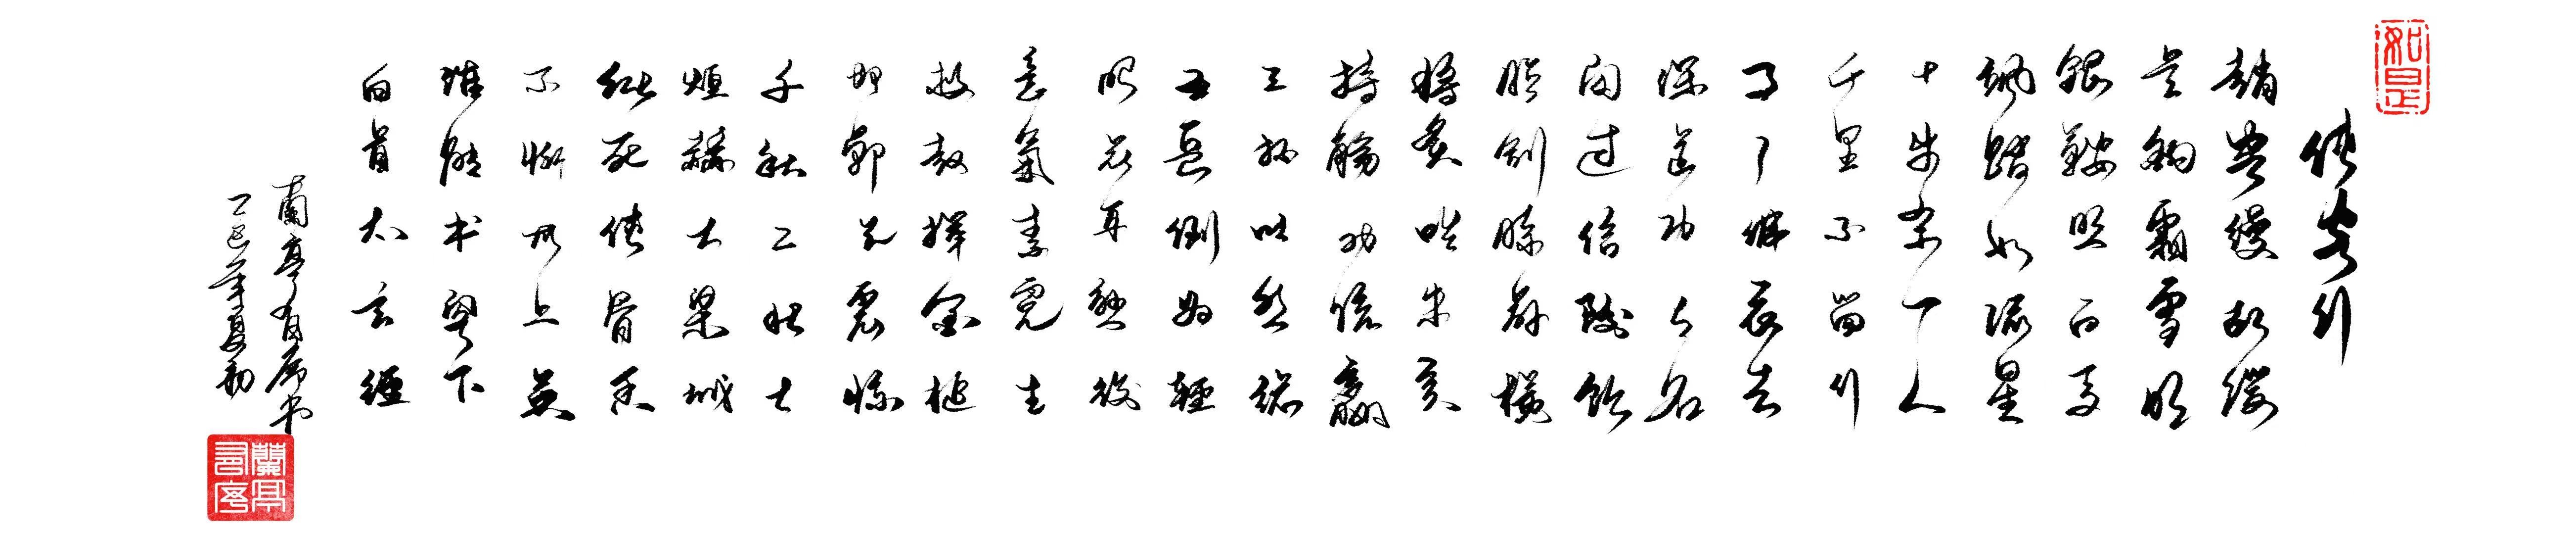 如是
俠客行
趙客縵胡纓
吳鉤霜雪明
銀鞍照白馬
颯踏如流星
十步殺一人
千里不留行
事了拂衣去
深藏功与名
閑過信陵飲
脫劍膝前橫
將炙啖朱亥
持觴勸侯嬴
三杯吐然諾
五岳倒為輕
眼花耳熱後
意氣素霓生
救趙揮金槌
邯鄲先震驚
千秋二壯士
烜赫大梁城
縱死俠骨香
不慚世上英
誰能书閣下
白首太玄經
蘭亭有序书
乙巳年夏勒
蘭亭有序